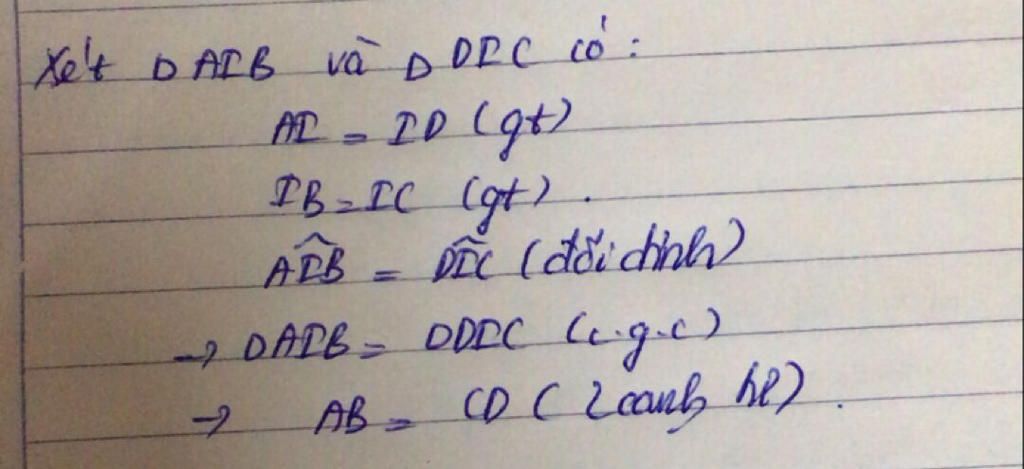 Xét Δ AIB và Δ DIC có:
AI = ID (gt)
IB = IC (gt).
AIB̂ = DIĈ (đối đỉnh)
→ ΔAIB = ΔDIC (c.g.c)
→ AB = CD (2 cạnh ).